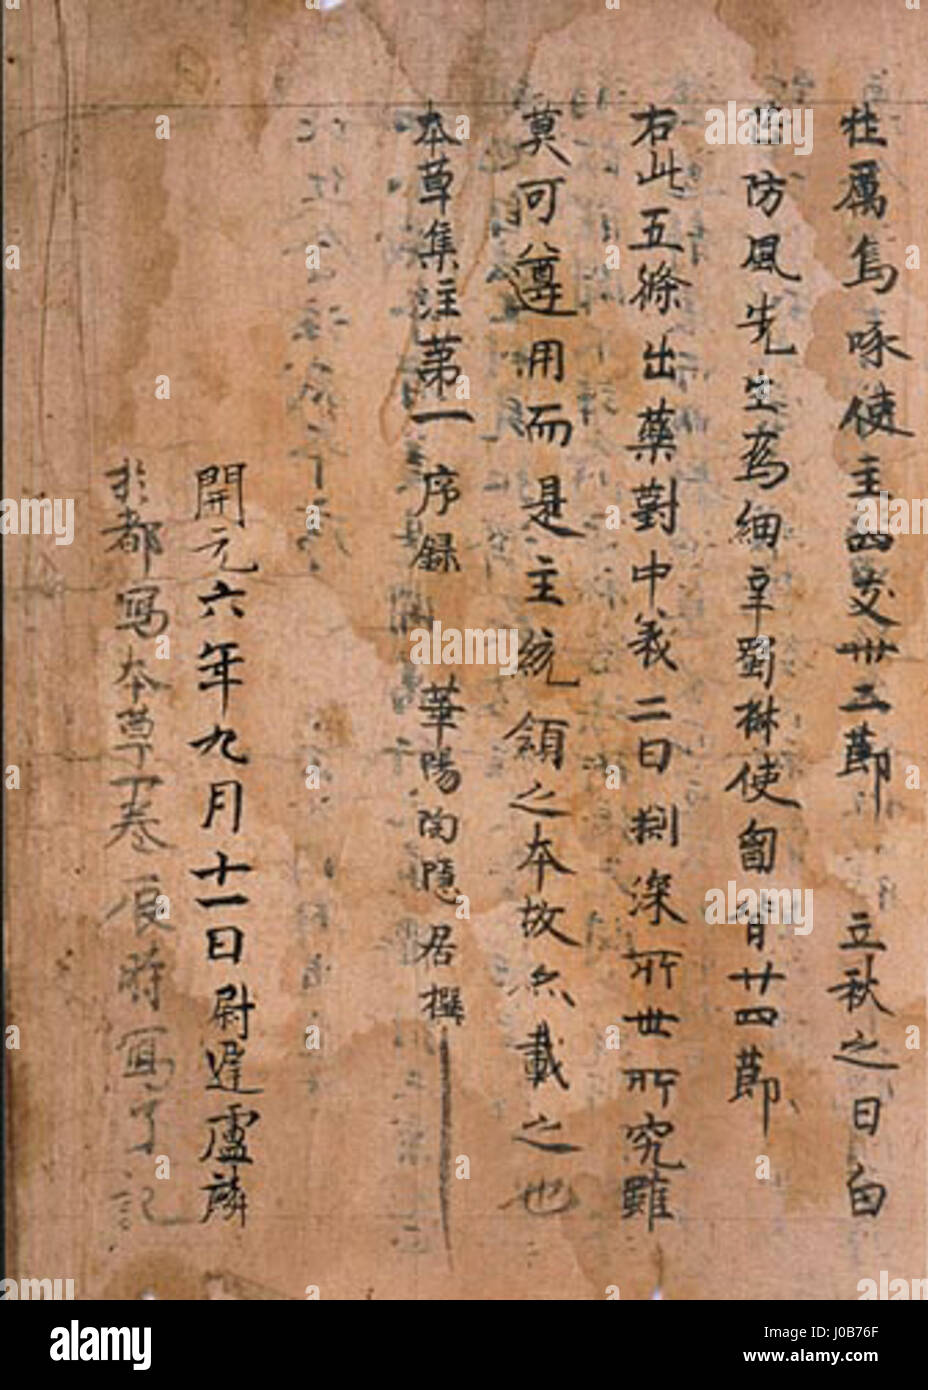 牡厲烏啄使主四支卅二節 立秋之日白
芷防風先生為細辛蜀椒使匈背廿四節
右此五條出藥對中義二曰捌深所世所究雖
莫可遵用而是主統領之本故亦載之也
本草集注第一 序録 華陽陶隱居撰
開元六年九月十一日尉遲盧麟
於都寫本草一卷辰時寫了記
alamy
Image ID: J0B76F
www.alamy.com